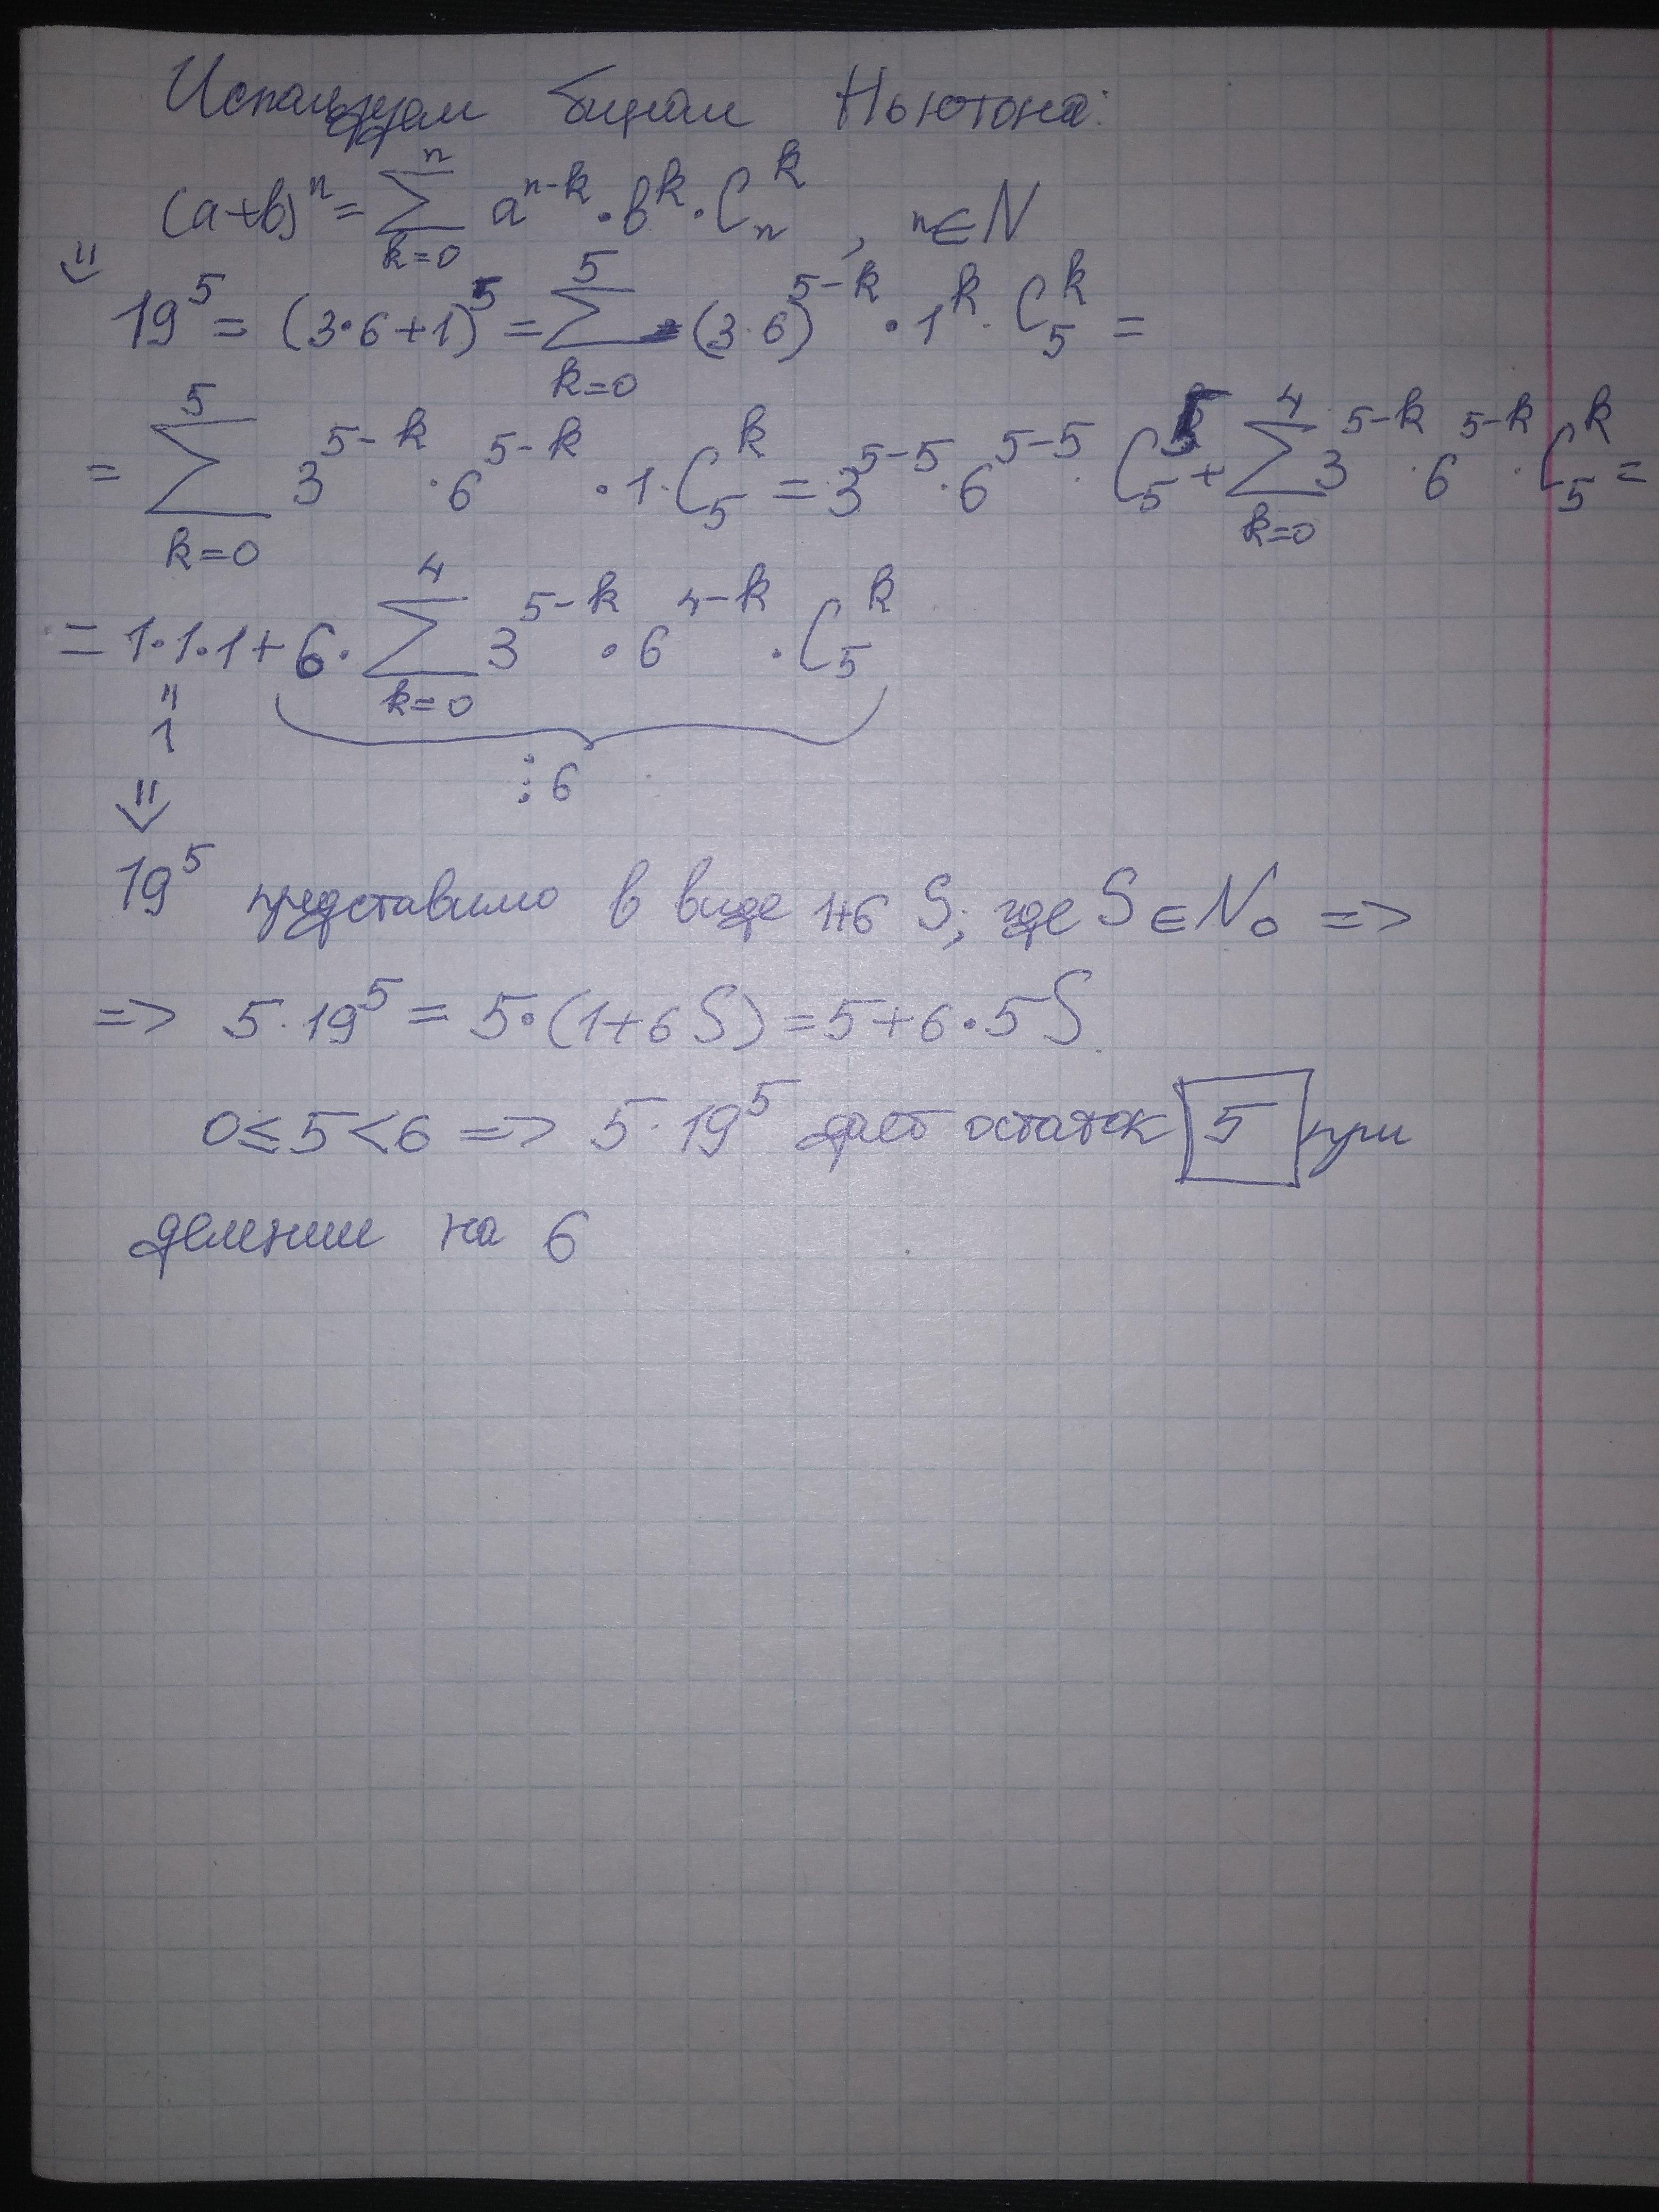 Используем бином Ньютона:
(a+b)^n = ∑_{k=0}^{n} a^{n-k} · b^k · C_n^k , n∈N
⇓
19^5 = (3·6+1)^5 = ∑_{k=0}^{5} (3·6)^{5-k} · 1^k · C_5^k =
= ∑_{k=0}^{5} 3^{5-k} · 6^{5-k} · 1 · C_5^k = 3^{5-5} · 6^{5-5} · C_5^5 + ∑_{k=0}^{4} 3^{5-k} · 6^{5-k} · C_5^k =
= 1·1·1 + 6 · ∑_{k=0}^{4} 3^{5-k} · 6^{4-k} · C_5^k
"
1
⋮6
⇓
19^5 представимо в виде 1+6 S; где S∈N₀ =>
=> 5·19^5 = 5·(1+6S) = 5+6·5S
0≤5<6 => 5·19^5 даёт остаток 5 при
делении на 6